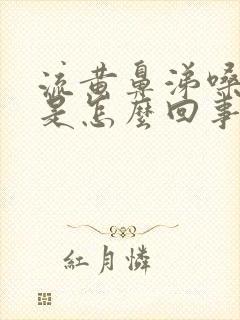 流黄鼻涕嗓
是怎麼回事
紅月憐